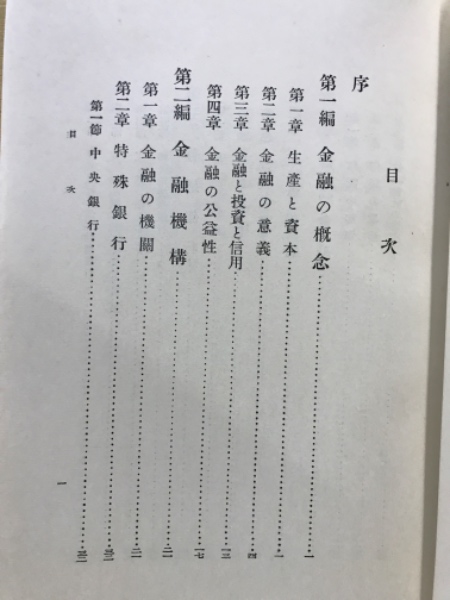 目次
序
第一編 金融の概念……一
第一章 生産と資本……一
第二章 金融の意義……四
第三章 金融と投資と信用……一三
第四章 金融の公益性……一七
第二編 金融機構……二一
第一章 金融の機關……二一
第二章 特殊銀行……
第一節 中央銀行……
目次
一